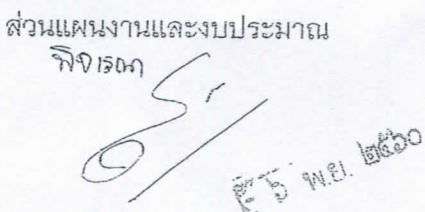 ส่วนแผนงานและงบประมาณ
พิจารณา
พ.ย. ๒๕๖๐